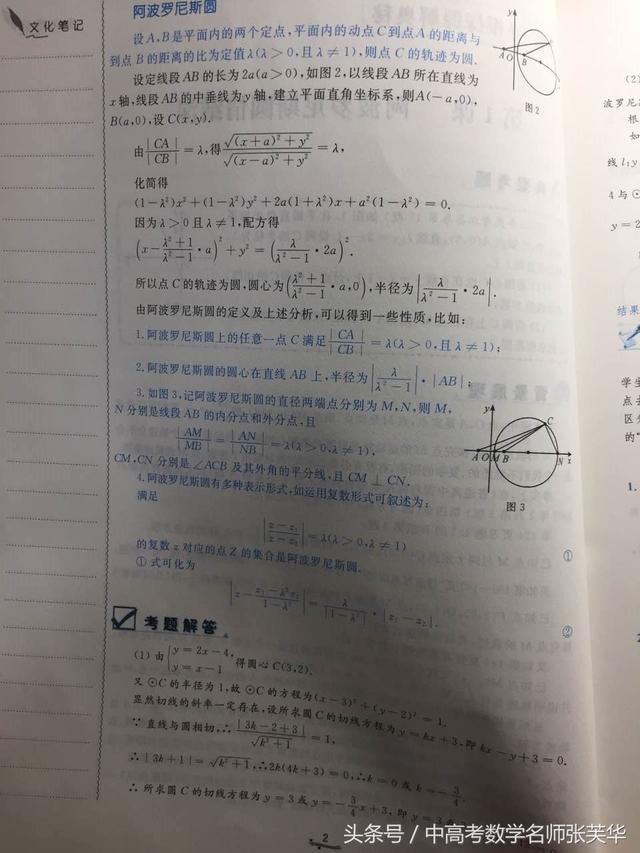 文化笔记
阿波罗尼斯圆
设A,B是平面内的两个定点,平面内的动点C到点A的距离与
到点B的距离的比为定值λ(λ>0,且λ≠1),则点C的轨迹为圆.
设定线段AB的长为2a(a>0),如图2,以线段AB所在直线为
x轴,线段AB的中垂线为y轴,建立平面直角坐标系,则A(-a,0),
B(a,0),设C(x,y).
图2
由|CA|/|CB|=λ,得√((x+a)²+y²)/√((x-a)²+y²)=λ,
化简得
(1-λ²)x²+(1-λ²)y²+2a(1+λ²)x+a²(1-λ²)=0.
因为λ>0且λ≠1,配方得
(x-(λ²+1)/(λ²-1)·a)²+y²=(λ/(λ²-1)·2a)².
所以点C的轨迹为圆,圆心为((λ²+1)/(λ²-1)·a,0),半径为|λ/(λ²-1)·2a|.
由阿波罗尼斯圆的定义及上述分析,可以得到一些性质,比如:
1.阿波罗尼斯圆上的任意一点C满足|CA|/|CB|=λ(λ>0,且λ≠1);
2.阿波罗尼斯圆的圆心在直线AB上,半径为|λ/(λ²-1)|·|AB|;
3.如图3,记阿波罗尼斯圆的直径两端点分别为M,N,则M,
N分别是线段AB的内分点和外分点,且
|AM|/|MB|=|AN|/|NB|=λ(λ>0,λ≠1),
CM,CN分别是∠ACB及其外角的平分线,且CM⊥CN.
图3
4.阿波罗尼斯圆有多种表示形式,如运用复数形式可叙述为:
满足
|(z-z₁)/(z-z₂)|=λ(λ>0,λ≠1) ①
的复数z对应的点Z的集合是阿波罗尼斯圆.
①式可化为
|z-(z₁-λ²z₂)/(1-λ²)|=λ/|1-λ²|·|z₁-z₂|. ②
考题解答
(1)由{y=2x-4, y=x-1 得圆心C(3,2).
又⊙C的半径为1,故⊙C的方程为(x-3)²+(y-2)²=1.
显然切线的斜率一定存在,设所求圆C的切线方程为y=kx+3,即kx-y+3=0.
∵直线与圆相切,∴|3k-2+3|/√(k²+1)=1,
∴|3k+1|=√(k²+1),∴2k(4k+3)=0,∴k=0或k=-3/4.
∴所求圆C的切线方程为y=3或y=-3/4x+3,即y=3
2
头条号/中高考数学名师张芙华